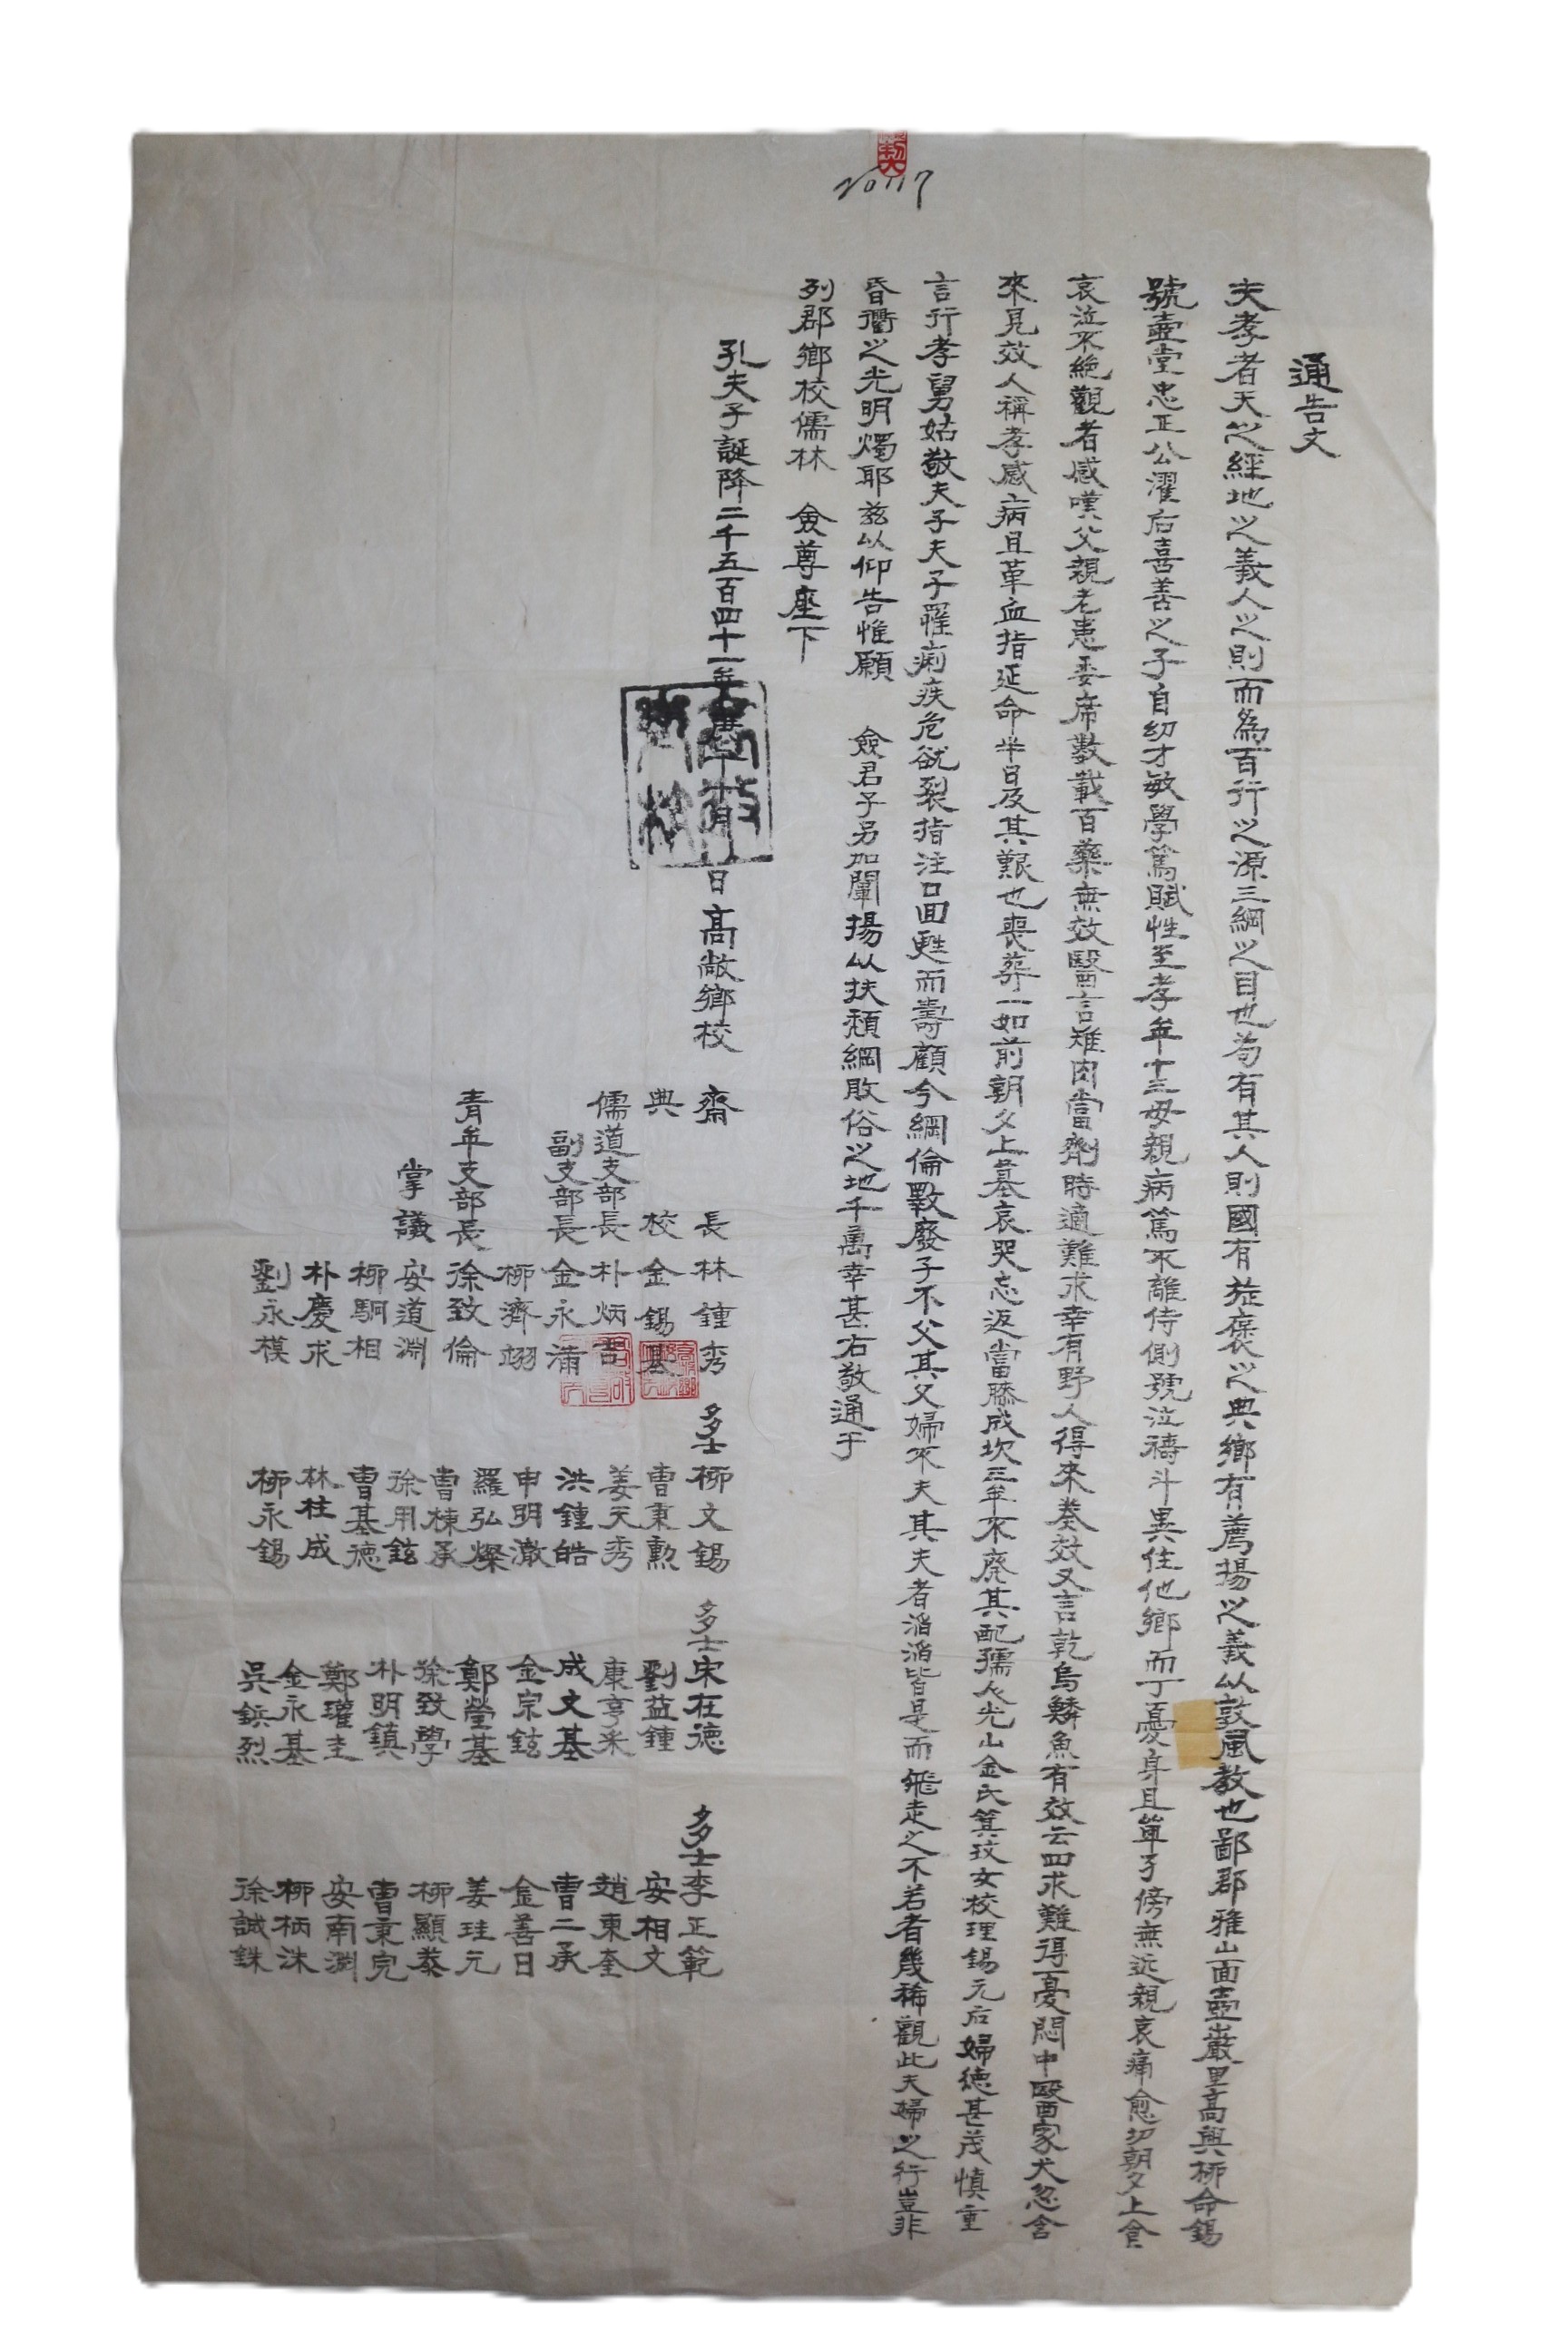 20117
通告文
夫孝者天之經地之義人之則而為百行之源三綱之目也苟有其人則國有旌褒之典鄉有薦揚之義以敦風教也鄙郡雅山面壺巖里高興柳命錫
號壺堂忠正公濯后喜善之子自幼才敏學篤賦性至孝年十三母親病篤不離侍側號泣禱斗異住他鄉而丁憂身且單孑傍無近親哀痛愈切朝夕上食
哀泣不絶觀者感嘆父親老患委席數載百藥無效醫言雉肉當劑時適難求幸有野人得來奏效又言乾烏鱗魚有效云四求難得憂悶中醫家犬忽含
來見效人稱孝感病且革血指延命半日及其艱也喪葬一如前朝夕上墓哀哭忘返當膝成坎三年不廃其配孺人光山金氏箕玟女校理錫元后婦德甚茂慎重
言行孝舅姑敬夫子夫子罹痢疾危欲裂指注口回甦而壽顧今綱倫斁廢子不父其父婦不夫其夫者滔滔皆是而飛走之不若者幾稀觀此夫婦之行豈非
昏衢之光明燭耶茲以仰告惟願 僉君子另加闡揚以扶頹綱敗俗之地千萬幸甚右敬通于
列郡鄉校儒林 僉尊座下
孔夫子誕降二千五百四十一年庚午 月 日 高敞鄉校 齋 長 林鍾秀 多士 柳文錫 多士 宋在德 多士 李正範
典 校 金錫基 曺秉勲 劉益鍾 安相文
儒道支部長 朴炳吾 姜天秀 康亨采 趙東奎
副支部長 金永蒲 洪鍾皓 成文基 曺二承
柳濟翊 申明澈 金宗鉉 金善日
青年支部長 徐致倫 羅弘燦 鄭瑩基 姜珪元
掌議 安道淵 曺棟承 徐致學 柳顯泰
柳駉相 徐用鉉 朴明鎮 曺秉完
朴慶求 曺基德 鄭瓘圭 安南淵
劉永模 林柱成 金永基 柳柄洙
柳永錫 吳鎮烈 徐誠銖